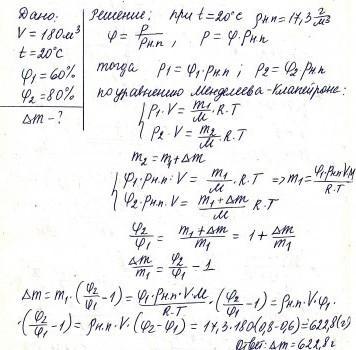 Дано:
V = 180 м³
t = 20°C
φ₁ = 60%
φ₂ = 80%
Δm - ?
Решение: при t = 20°C ρн.п = 17,3 г/м³
φ = P/Pн.п , P = φ · Pн.п
тогда P₁ = φ₁ · Pн.п ; P₂ = φ₂ · Pн.п
по уравнению Менделеева-Клапейрона:
P₁ · V = m₁/M · R · T
P₂ · V = m₂/M · R · T
m₂ = m₁ + Δm
φ₁ · Pн.п · V = m₁/M · R · T => m₁ = φ₁ Pн.п V M / R · T
φ₂ · Pн.п · V = m₁ + Δm / M · R T
φ₂/φ₁ = m₁ + Δm / m₁ = 1 + Δm/m₁
Δm/m₁ = φ₂/φ₁ - 1
Δm = m₁ · (φ₂/φ₁ - 1) = φ₁ · Pн.п · V · M / R · T · (φ₂/φ₁ - 1) = ρн.п · V · φ₁ ·
· (φ₂/φ₁ - 1) = ρн.п · V · (φ₂ - φ₁) = 17,3 · 180 (0,8 - 0,6) = 622,8 (г)
Ответ: Δm = 622,8 г